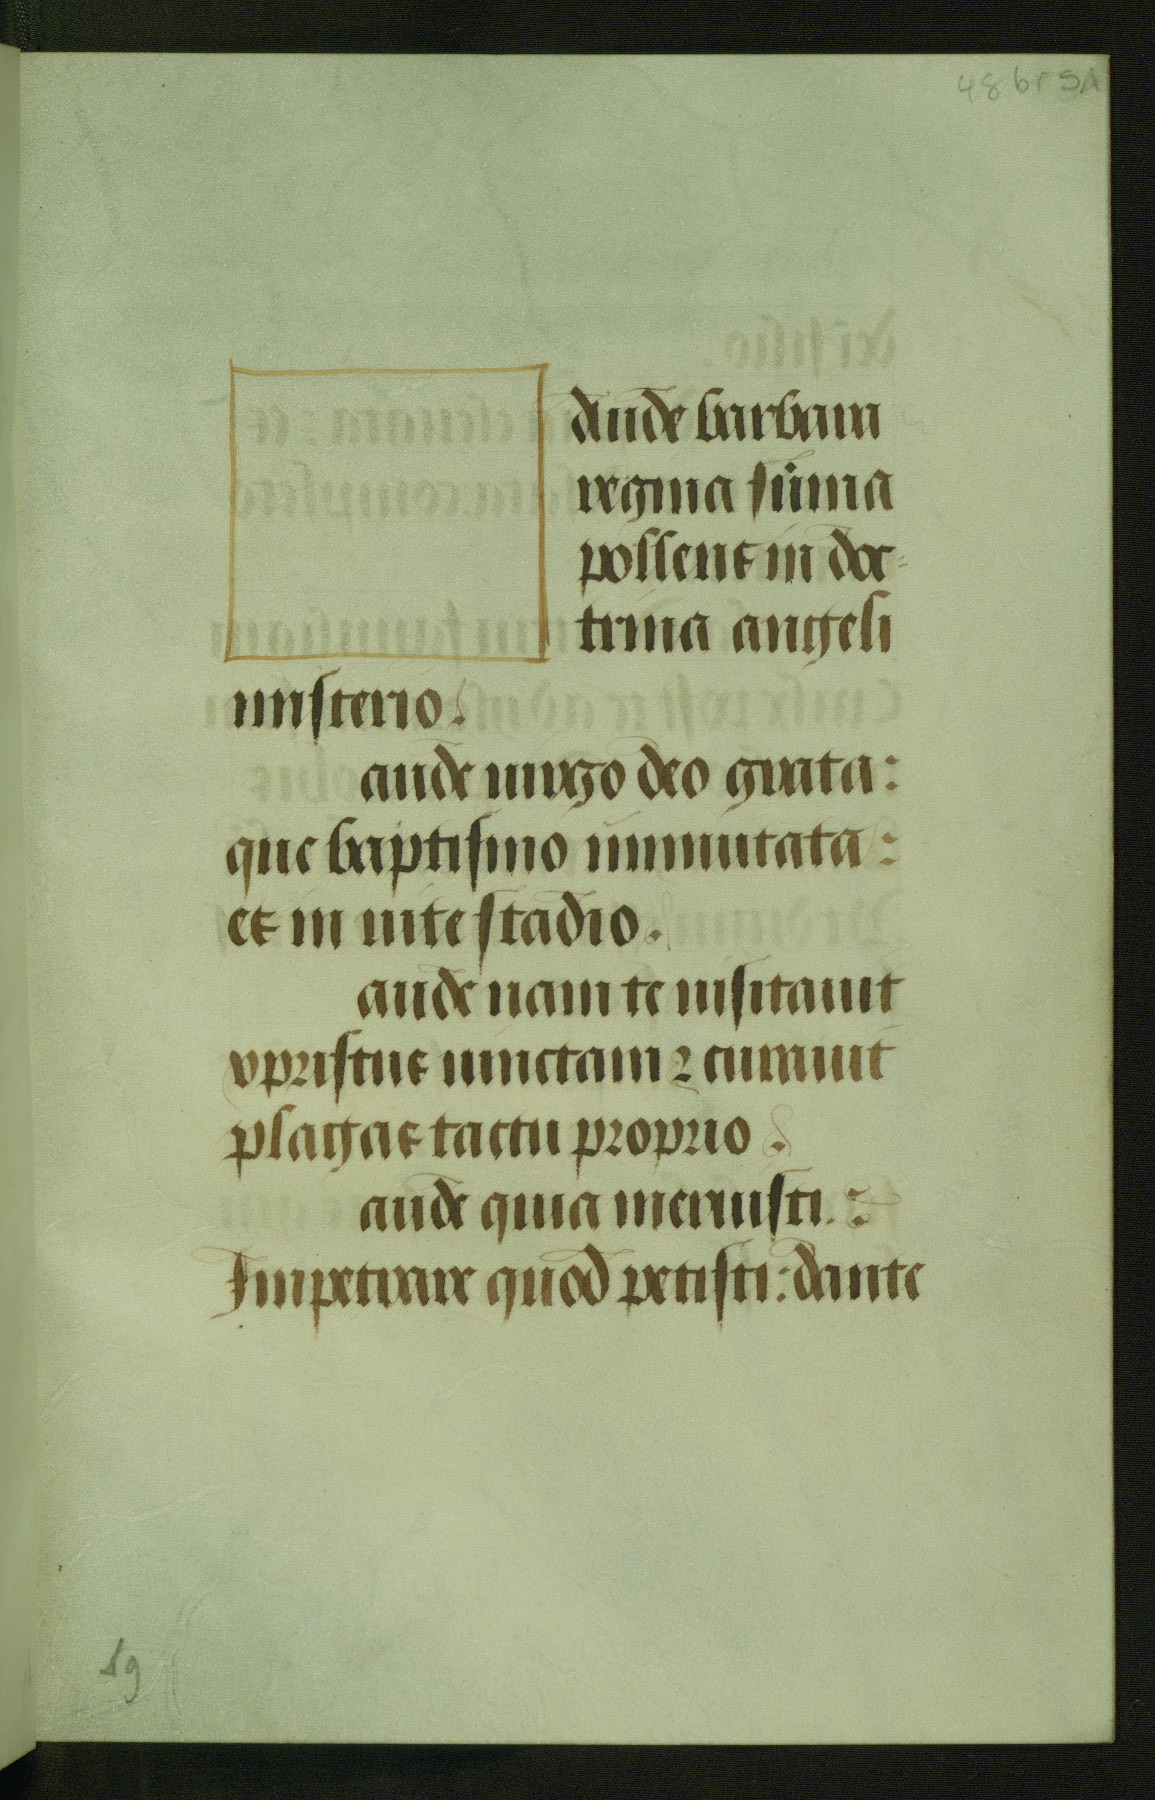 48 br SA
aude barbara
regina sūma
pollens in doc-
trina angeli
misterio.
aude uirgo deo grata:
que baptismo immutata:
et in uite stadio.
aude nam te uisitauit
xpristus uinctam ⁊ curauit
plagas tactu proprio.
aude quia meruisti:
Impetrare quod petisti: dante
19